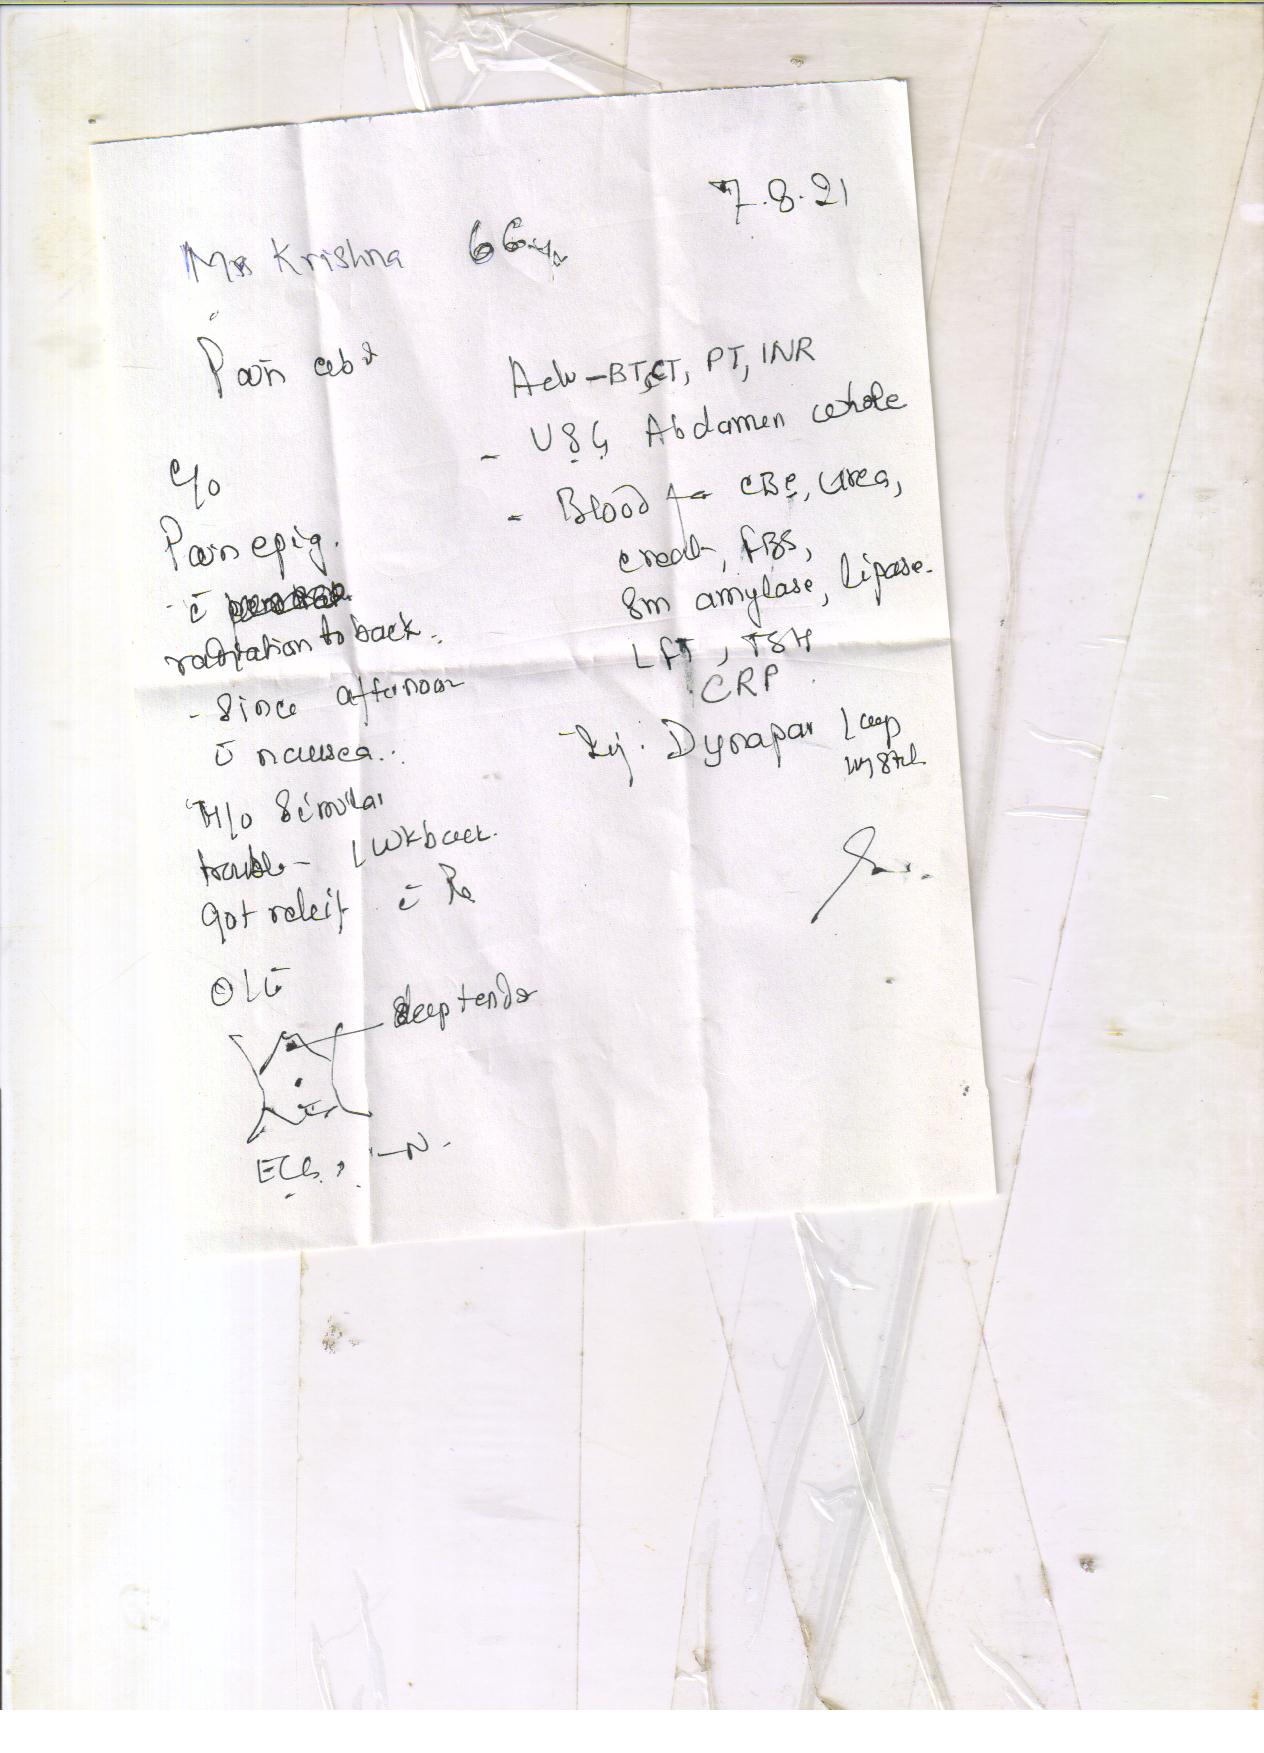 7.8.21
Mrs Krishna 66 yr
Pain abd
c/o
Pain epig.
- c̄
radiation to back.
- Since afternoon
c̄ nausea.
H/o Similar
trouble - 1 wk back.
got releif c̄ Rx
O/E
deep tender
ECG, - N -
Adv - BT, CT, PT, INR
- USG Abdamen whole
- Blood for CBC, Urea,
creat, FBS,
Sm amylase, Lipase.
LFT, TSH
CRP
Inj. Dynapar 1 amp